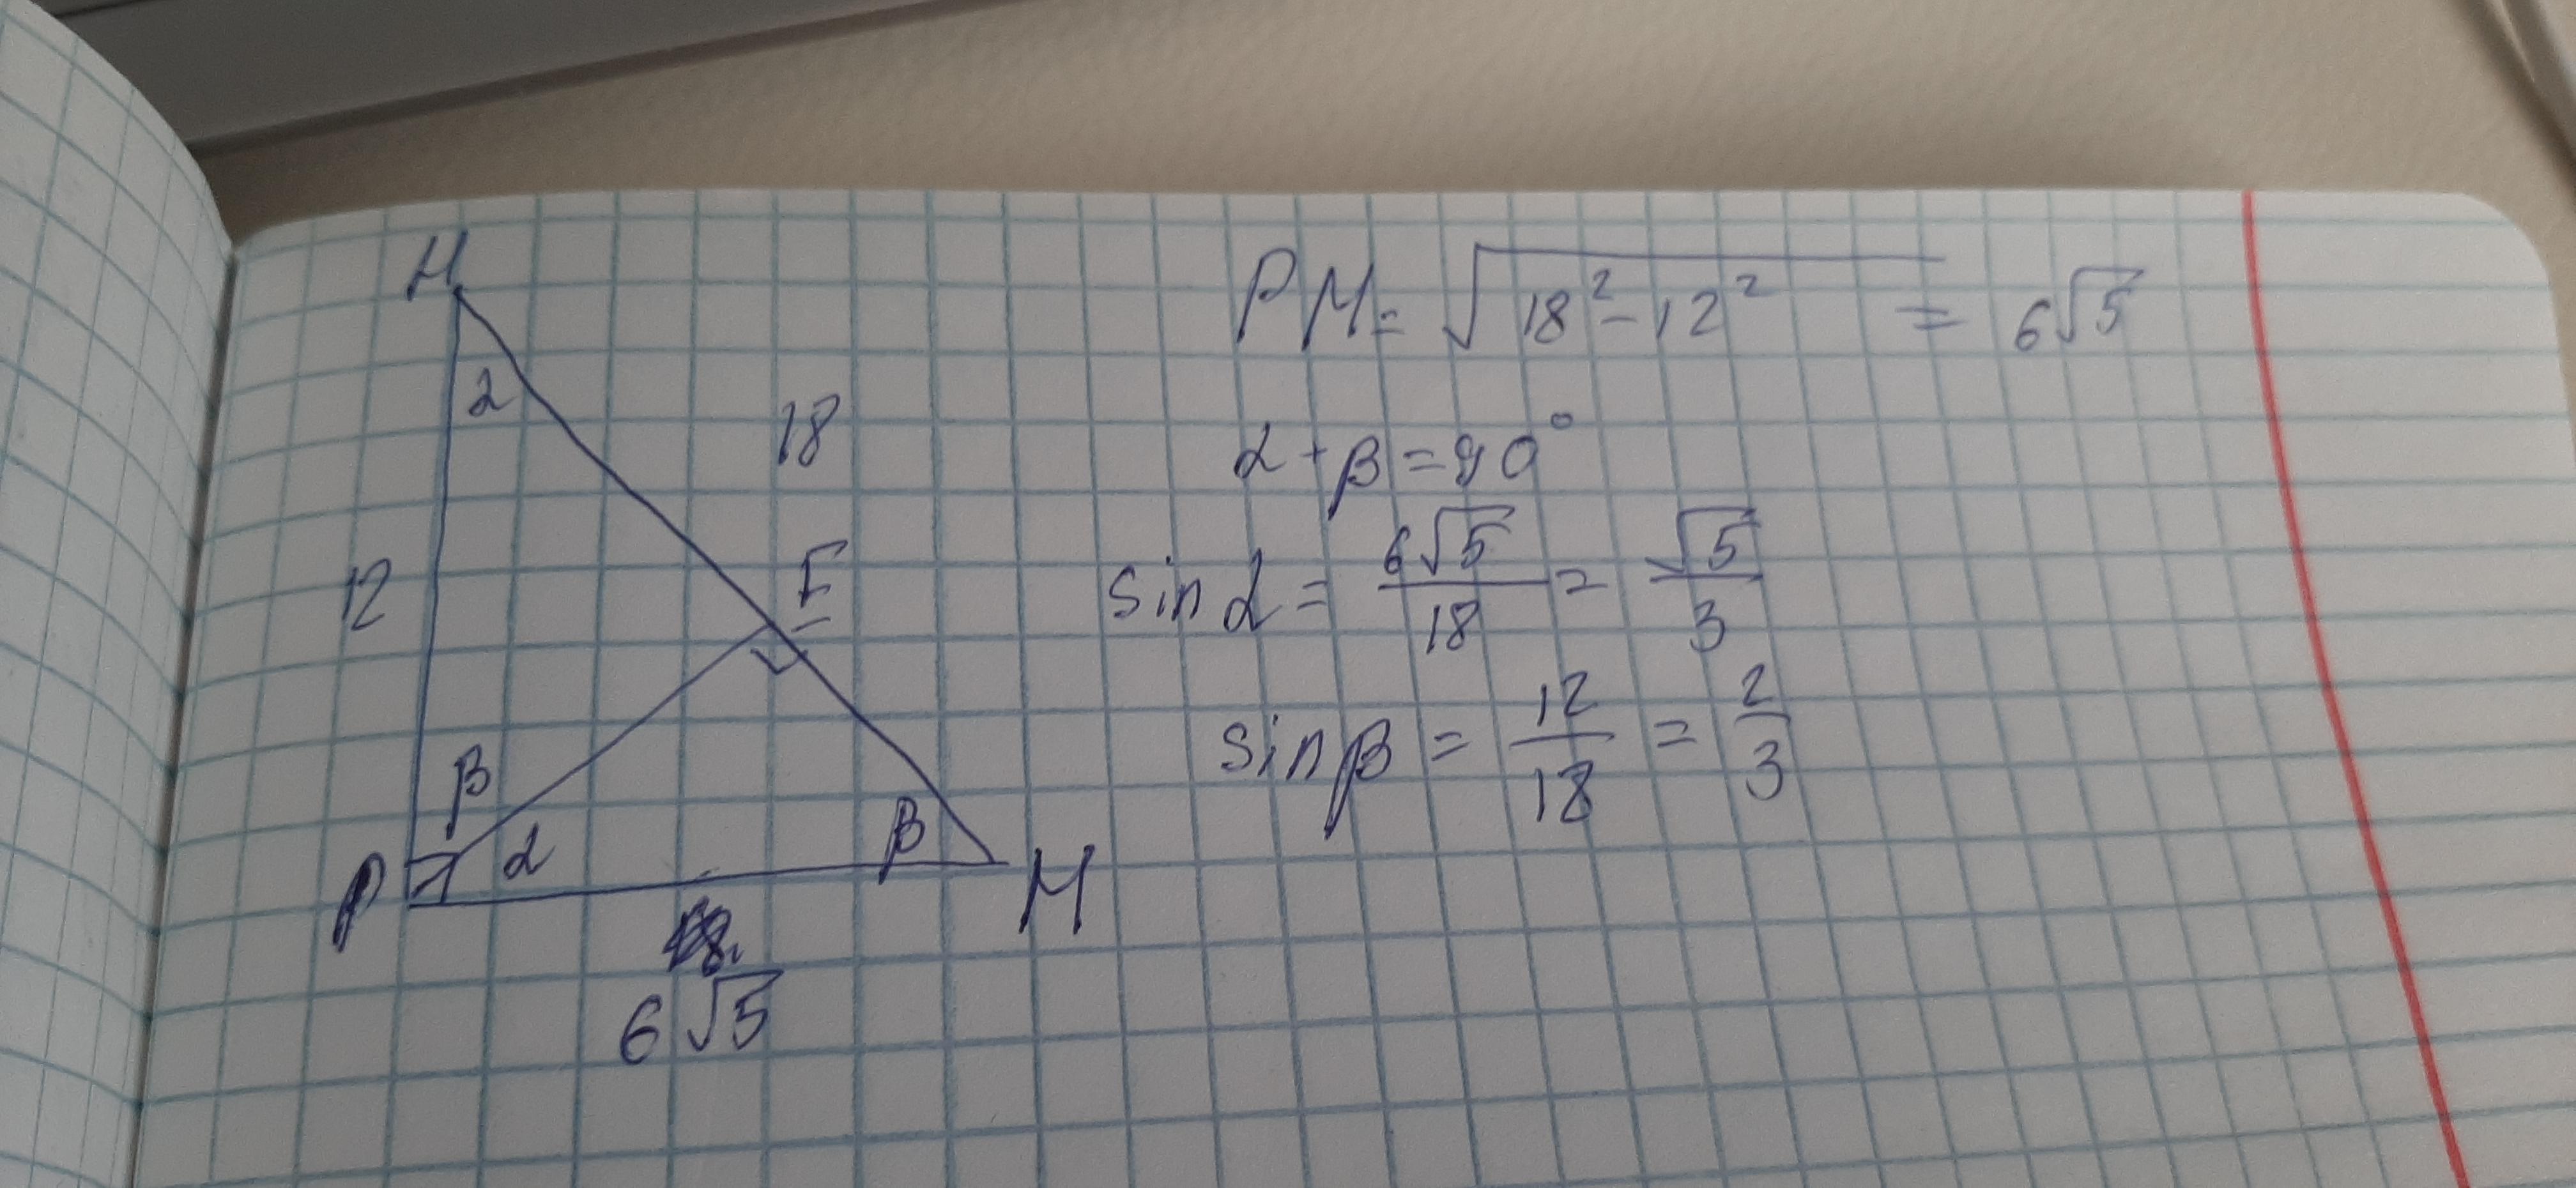 H
α
18
12
E
β
α
β
P
M
6√5
PM = √(18² - 12²) = 6√5
α + β = 90°
sin α = 6√5/18 = √5/3
sin β = 12/18 = 2/3